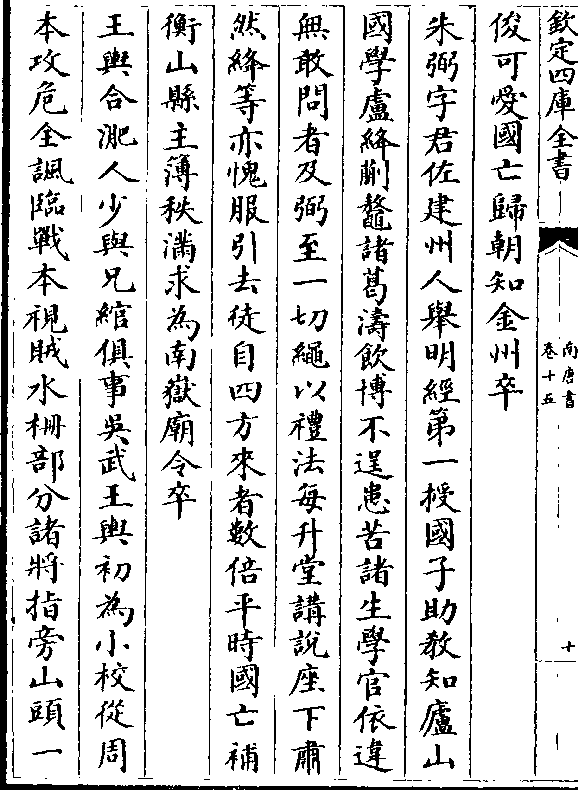 欽定四庫全書
南唐書
卷十五
十
俊可愛國亡歸朝知金州卒
朱弼字君佐建州人舉明經第一授國子助教知廬山
國學盧絳蒯鼇諸葛濤飲博不逞患苦諸生學官依違
無敢問者及弼至一切繩以禮法每升堂講說座下肅
然絳等亦愧服引去徒自四方來者數倍平時國亡補
衡山縣主簿秩滿求為南嶽廟令卒
王輿合淝人少與兄綰俱事吳武王輿初為小校從周
本攻危全諷臨戰本視賊水柵部分諸將指旁山頭一